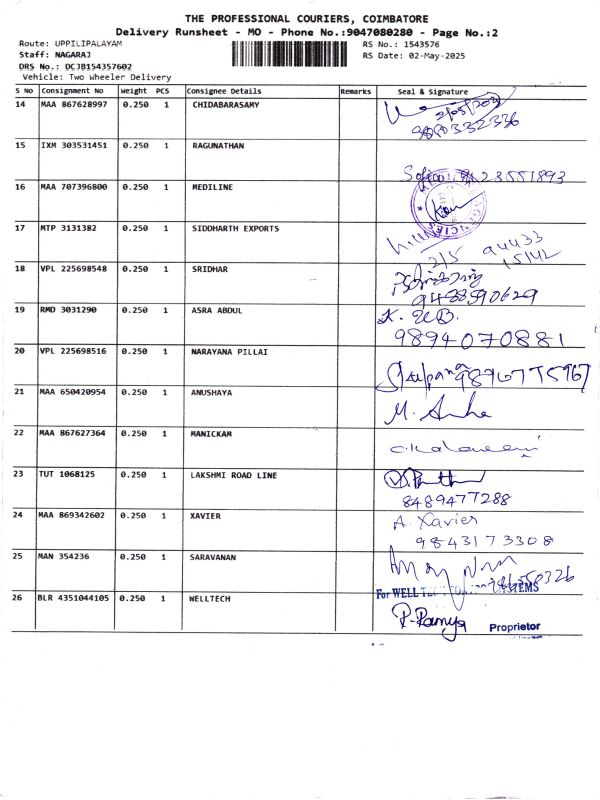 THE PROFESSIONAL COURIERS, COIMBATORE
Delivery Runsheet - MO - Phone No.:9047080280 - Page No.:2
Route: UPPILIPALAYAM RS No.: 1543576
Staff: NAGARAJ RS Date: 02-May-2025
DRS No.: DCJB154357602
Vehicle: Two Wheeler Delivery
S No Consignment No Weight PCS Consignee Details Remarks Seal & Signature
14 MAA 867628997 0.250 1 CHIDABARASAMY
15 IXM 303531451 0.250 1 RAGUNATHAN
16 MAA 707396800 0.250 1 MEDILINE
17 MTP 3131382 0.250 1 SIDDHARTH EXPORTS
2/5 94433
15142
18 VPL 225698548 0.250 1 SRIDHAR
9488590629
19 RMD 3031290 0.250 1 ASRA ABDUL
9894070881
20 VPL 225698516 0.250 1 NARAYANA PILLAI
21 MAA 650420954 0.250 1 ANUSHAYA
22 MAA 867627364 0.250 1 MANICKAM
23 TUT 1068125 0.250 1 LAKSHMI ROAD LINE
8489477288
24 MAA 869342602 0.250 1 XAVIER A. Xavier
9843173308
25 MAN 354236 0.250 1 SARAVANAN
26 BLR 4351044105 0.250 1 WELLTECH For WELL
P. Ramya
Proprietor